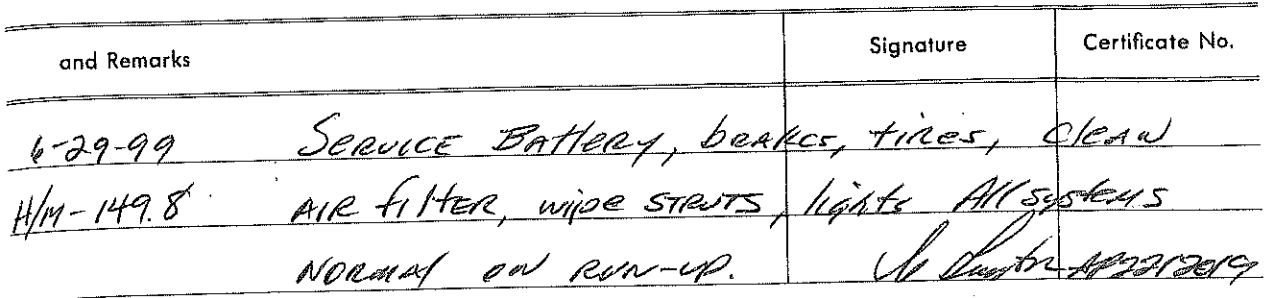 and Remarks Signature Certificate No.
6-29-99 Service Battery, brakes, tires, clean
H/M-149.8 AIR filter, wipe struts, lights All systems
Normal on run-up.